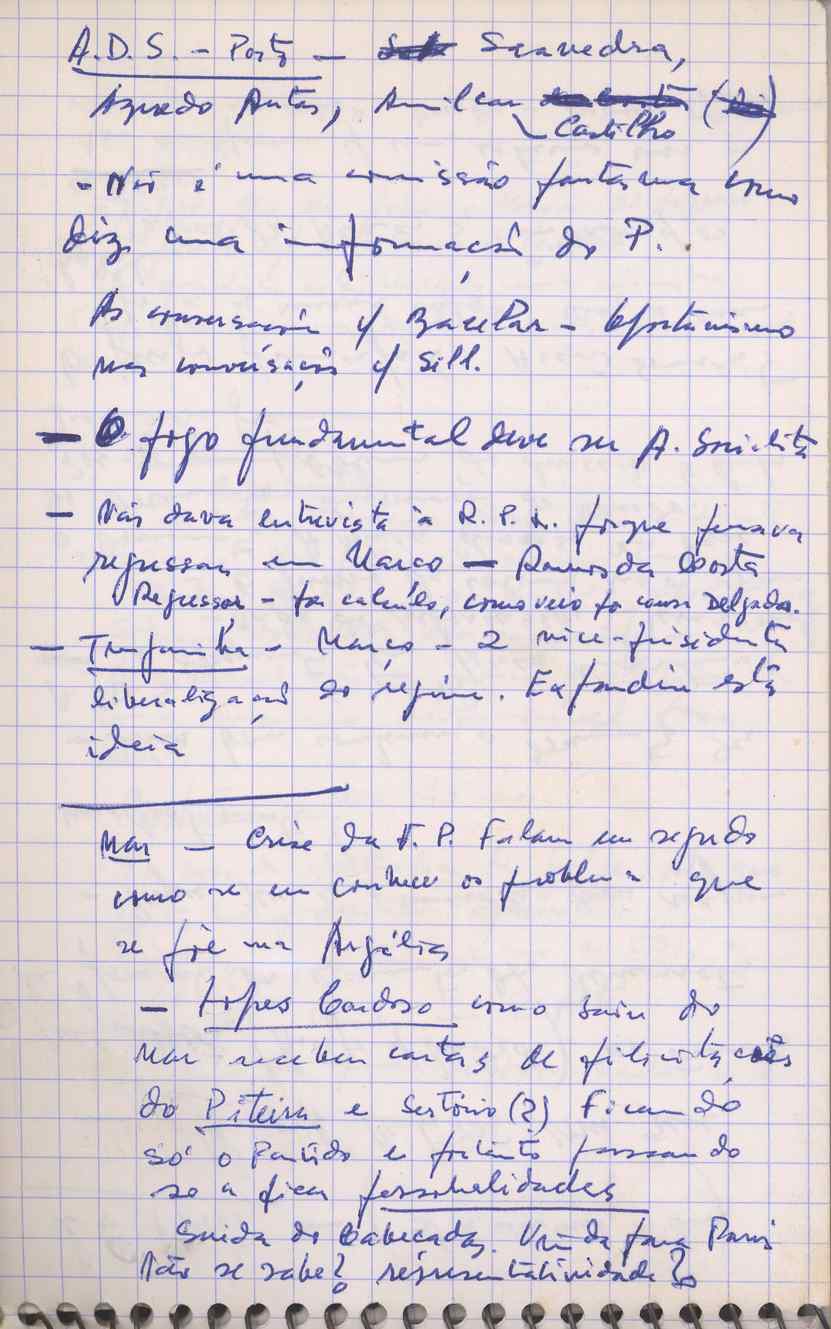 A.D.S. - Porto - Saavedra,
Azeredo Antas, Amilcar
Castilho
- Não é uma comissão fantasma como
diz uma informação do P.
As conversações c/ Bacelar - Optimismo
nas conversações c/ Sill.
- O fogo fundamental deve ser A. Socialista
- Não dava entrevista à R.P.L. porque pensava
regressar em Março - Ramos da Costa
Regressar - foi calculo, como veio fa
Delgado.
- Março - 2 vice-presidentes
liberalização do regime. Expandiu esta
ideia
Mar - Crise da F.P. Falam em segredo
como se eu conhecesse os problemas que
se põe na Argélia
- Lopes Cardoso como saiu do
Mar recebeu cartas de felicitações
do Piteira e Sertório (2) Ficando
só o Partido e portanto passando
só a ficar personalidades
Saida do Cabeçadas. Vinda para Paris
Não se sabe? representatividade?